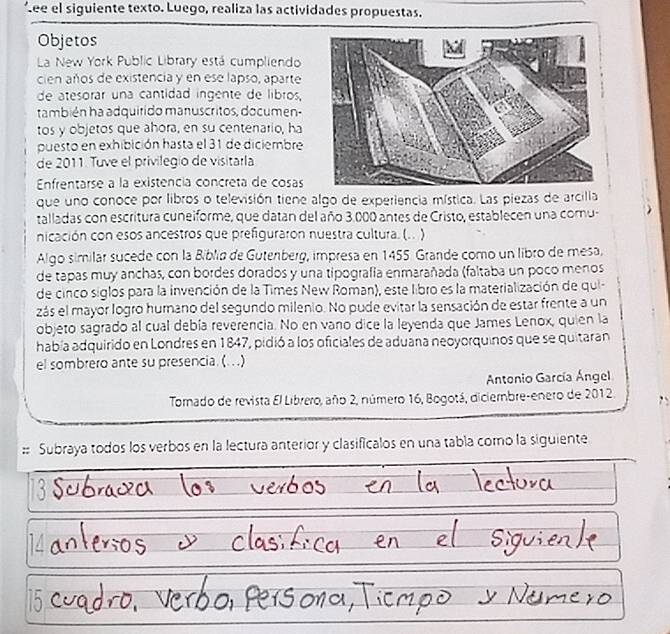 Lee el siguiente texto. Luego, realiza las actividades propuestas.
Objetos
La New York Public Library está cumpliendo
cien años de existencia y en ese lapso, aparte
de atesorar una cantidad ingente de libros,
también ha adquirido manuscritos, documen-
tos y objetos que ahora, en su centenario, ha
puesto en exhibición hasta el 31 de diciembre
de 2011. Tuve el privilegio de visitarla.
Enfrentarse a la existencia concreta de cosas
que uno conoce por libros o televisión tiene algo de experiencia mística. Las piezas de arcilla
talladas con escritura cuneiforme, que datan del año 3.000 antes de Cristo, establecen una comu-
nicación con esos ancestros que prefiguraron nuestra cultura. (...)
Algo similar sucede con la Biblia de Gutenberg, impresa en 1455. Grande como un libro de mesa,
de tapas muy anchas, con bordes dorados y una tipografía enmarañada (faltaba un poco menos
de cinco siglos para la invención de la Times New Roman), este libro es la materialización de qui-
zás el mayor logro humano del segundo milenio. No pude evitar la sensación de estar frente a un
objeto sagrado al cual debía reverencia. No en vano dice la leyenda que James Lenox, quien la
había adquirido en Londres en 1847, pidió a los oficiales de aduana neoyorquinos que se quitaran
el sombrero ante su presencia. (...)
Antonio García Ángel
Tomado de revista El Librero, año 2, número 16, Bogotá, diciembre-enero de 2012.
Subraya todos los verbos en la lectura anterior y clasifícalos en una tabla como la siguiente
13 Subraya los verbos en la lectura
14 anterios y clasifica en el siguiente
15 cuadro. Verbo, Persona, Tiempo y Numero